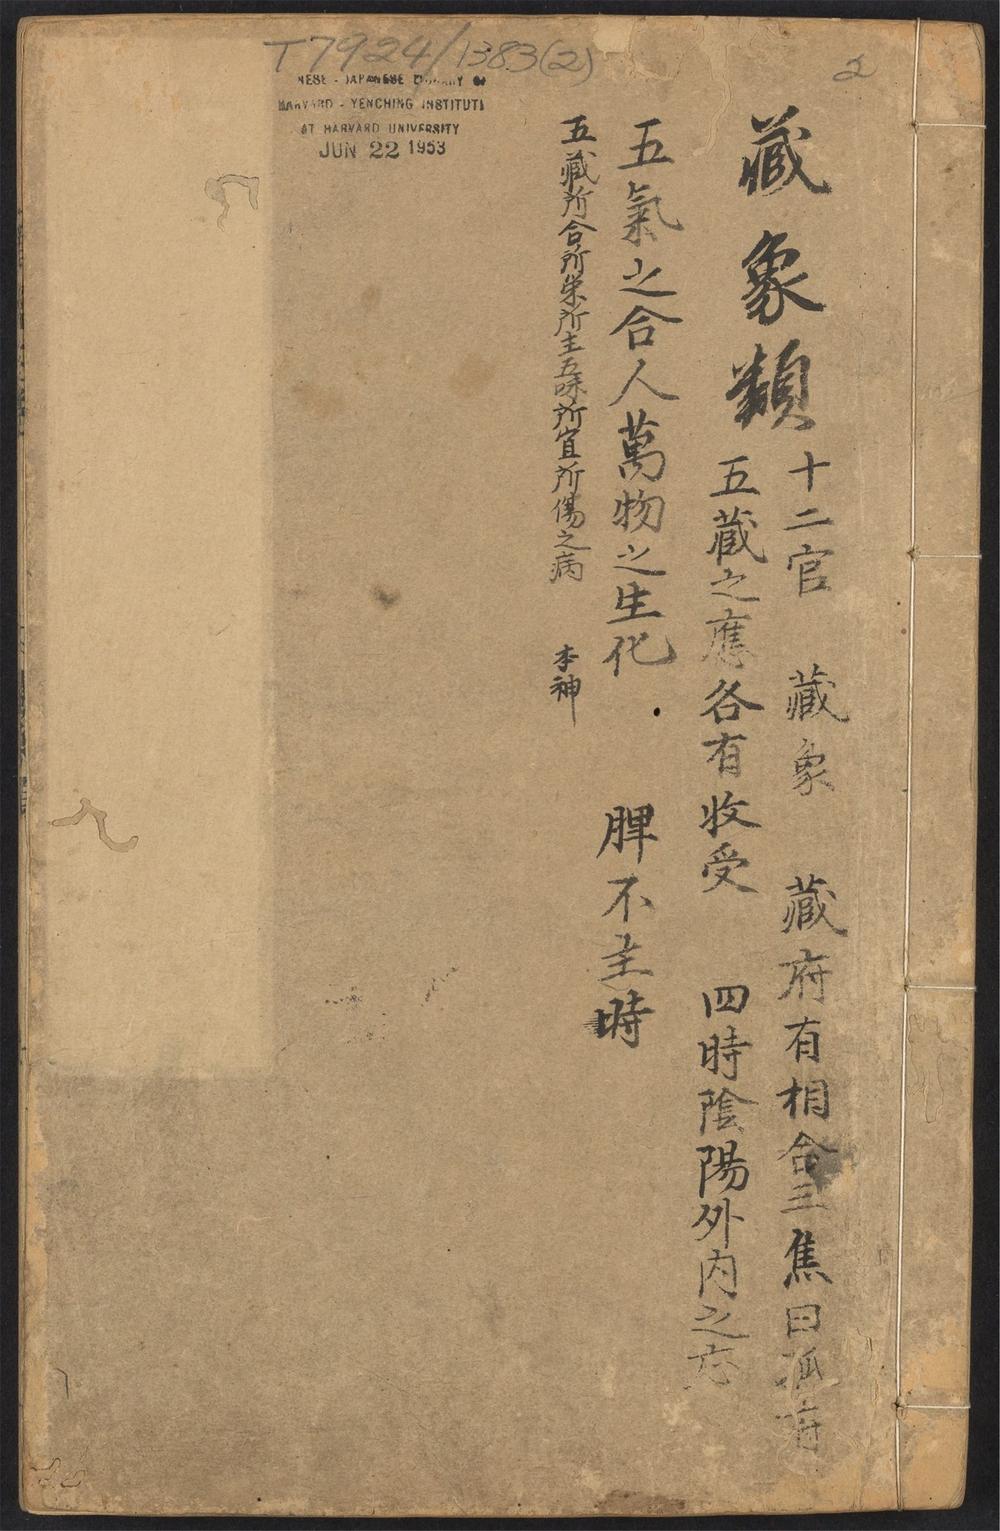 T7924/1383(2)
2
NESE - JAPANESE LIBRARY OF
HARVARD - YENCHING INSTITUTE
AT HARVARD UNIVERSITY
JUN 22 1953
藏象類
十二官 藏象 藏府有相合三焦曰孤府
五藏之應各有收受 四時陰陽外內之应
五氣之合人萬物之生化 脾不主時
五藏所合所荣所主五味所宜所傷之病 本神